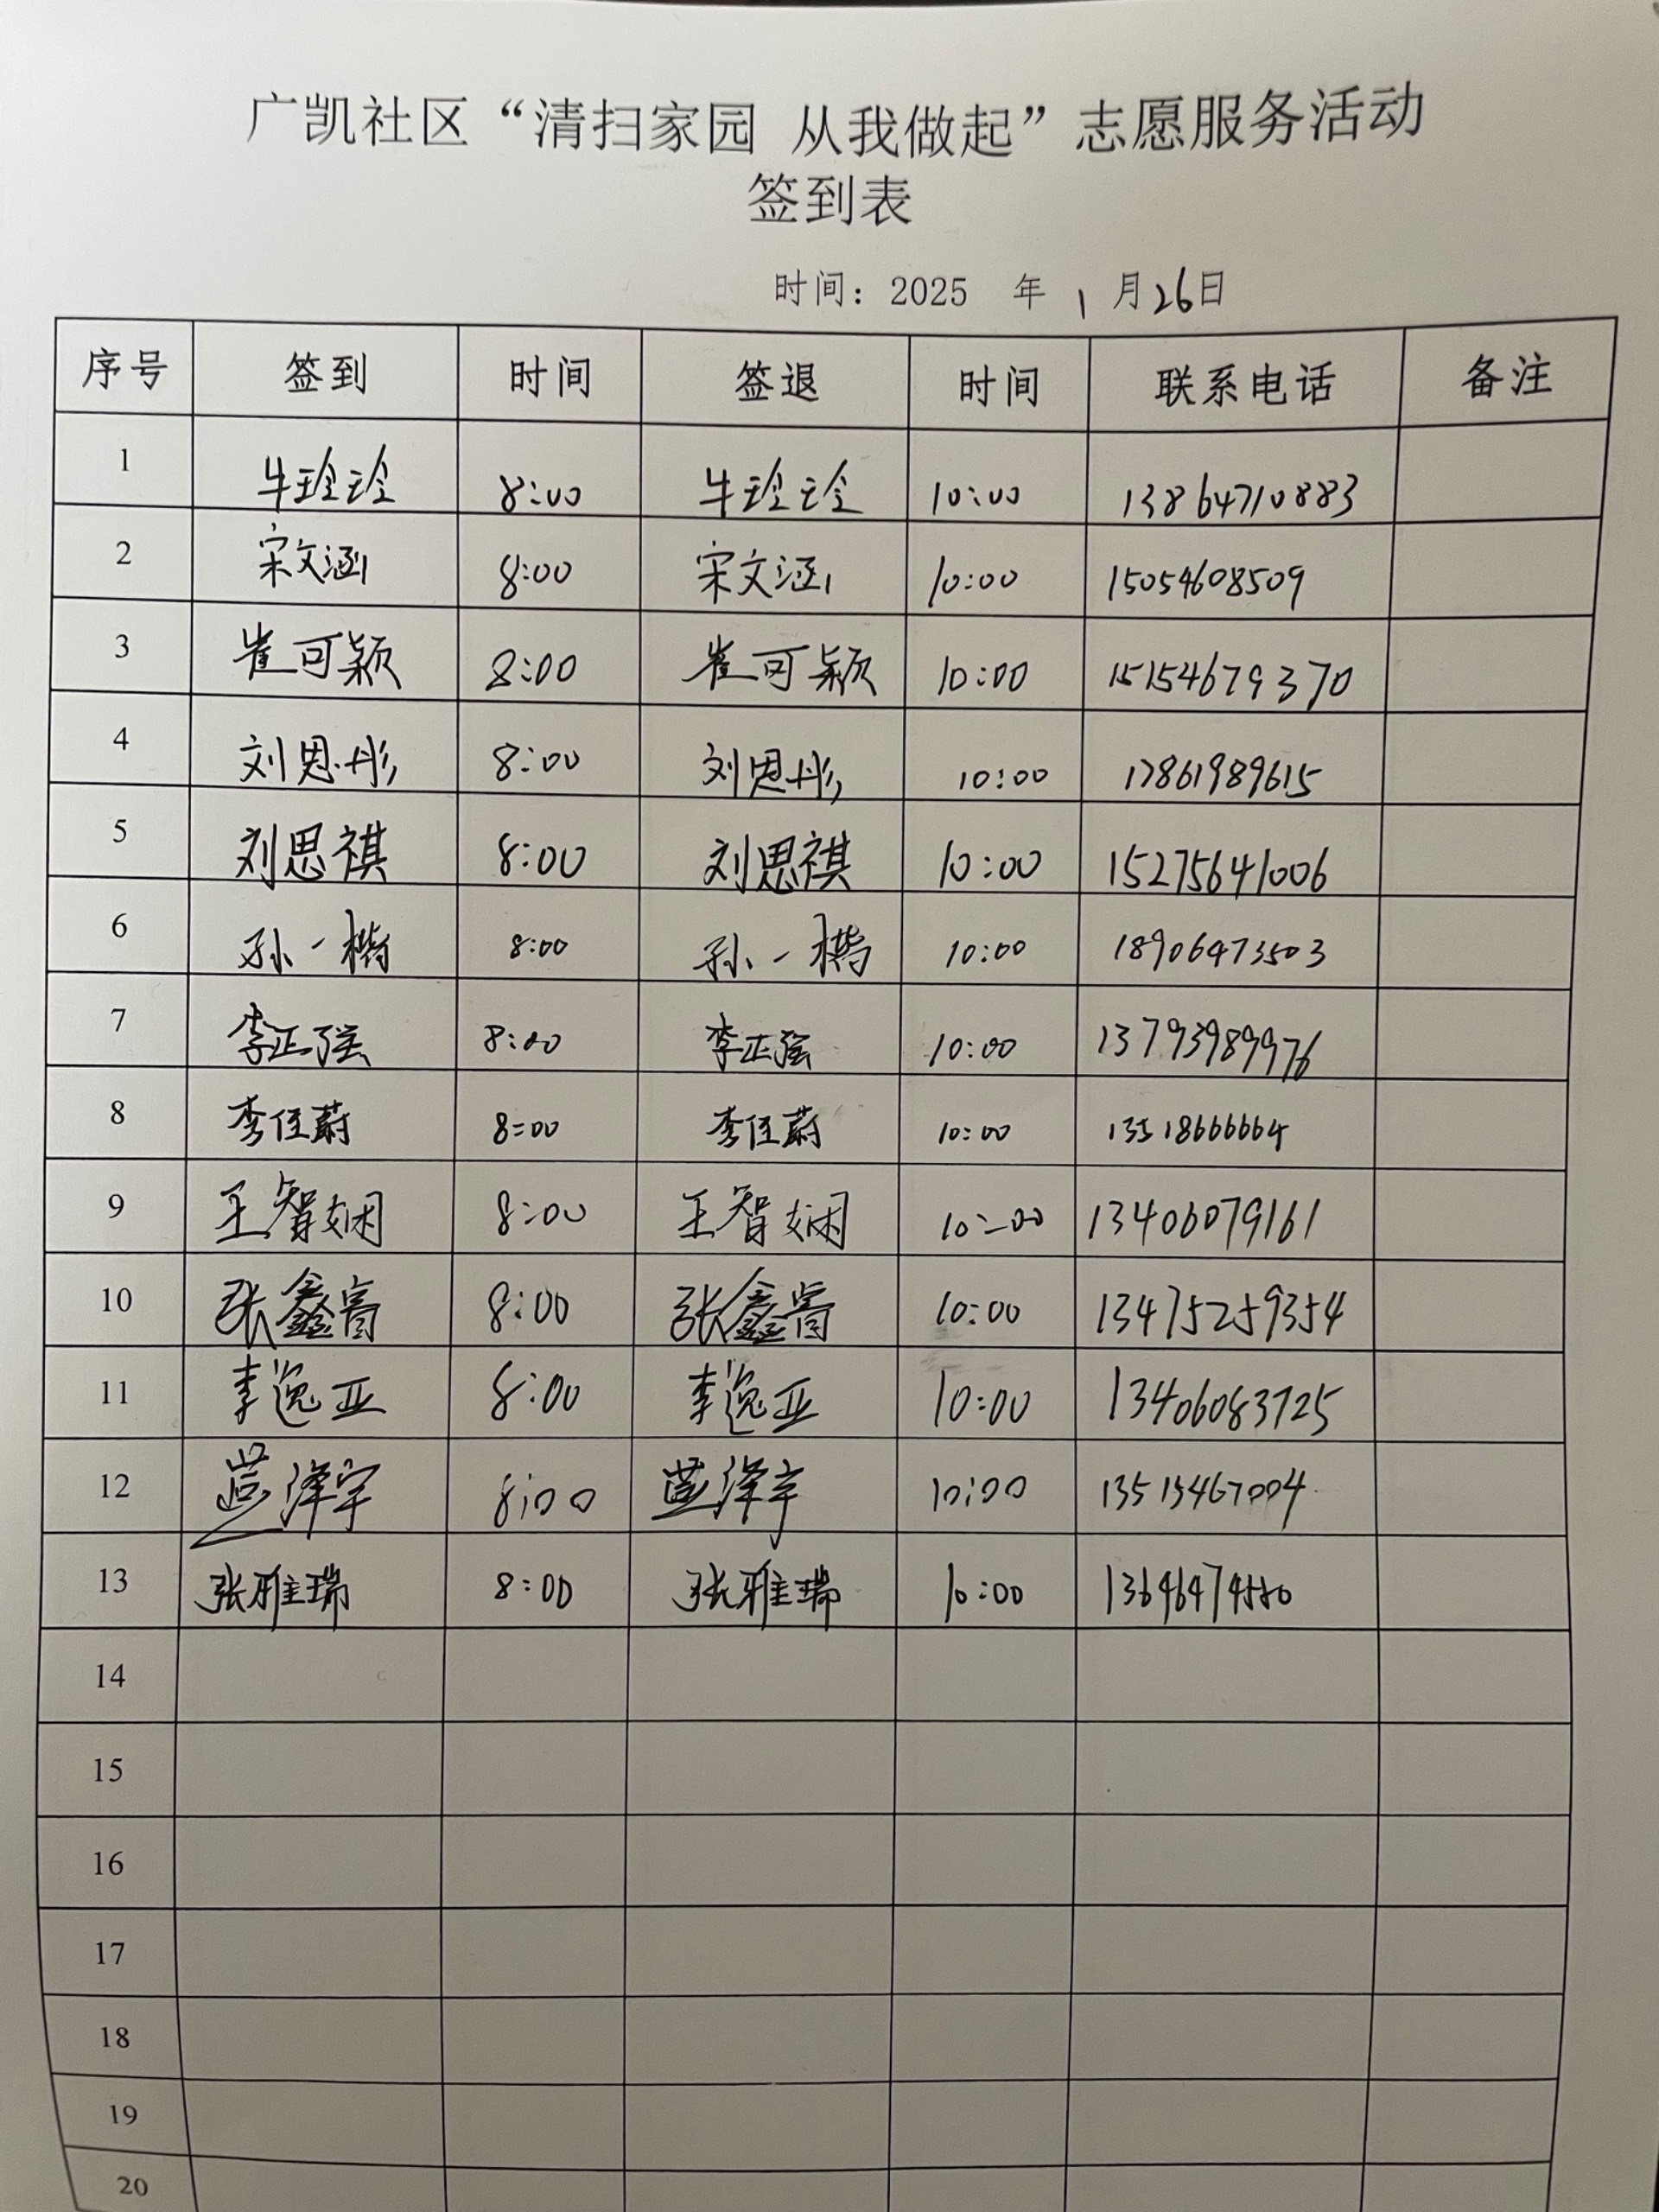 广凯社区“清扫家园 从我做起”志愿服务活动
签到表
时间：2025 年 1 月26日
序号 签到 时间 签退 时间 联系电话 备注
1 牛玲玲 8:00 牛玲玲 10:00 13864710883
2 宋文涵 8:00 宋文涵 10:00 15054608509
3 崔可颖 8:00 崔可颖 10:00 15154679370
4 刘思彤 8:00 刘思彤 10:00 17861989615
5 刘思祺 8:00 刘思祺 10:00 15275641006
6 孙一楷 8:00 孙一 10:00 18906473503
7 李正强 8:00 李正强 10:00 13793989976
8 李佳蔚 8:00 李佳蔚 10:00 13518666664
9 王智娴 8:00 王智娴 10:00 13406079161
10 张鑫 8:00 张鑫 10:00 13475259354
11 李逸亚 8:00 李逸亚 10:00 13406083725
12 泽宇 8:00 泽宇 10:00
13 张雅瑞 8:00 张雅瑞 10:00
14
15
16
17
18
19
20